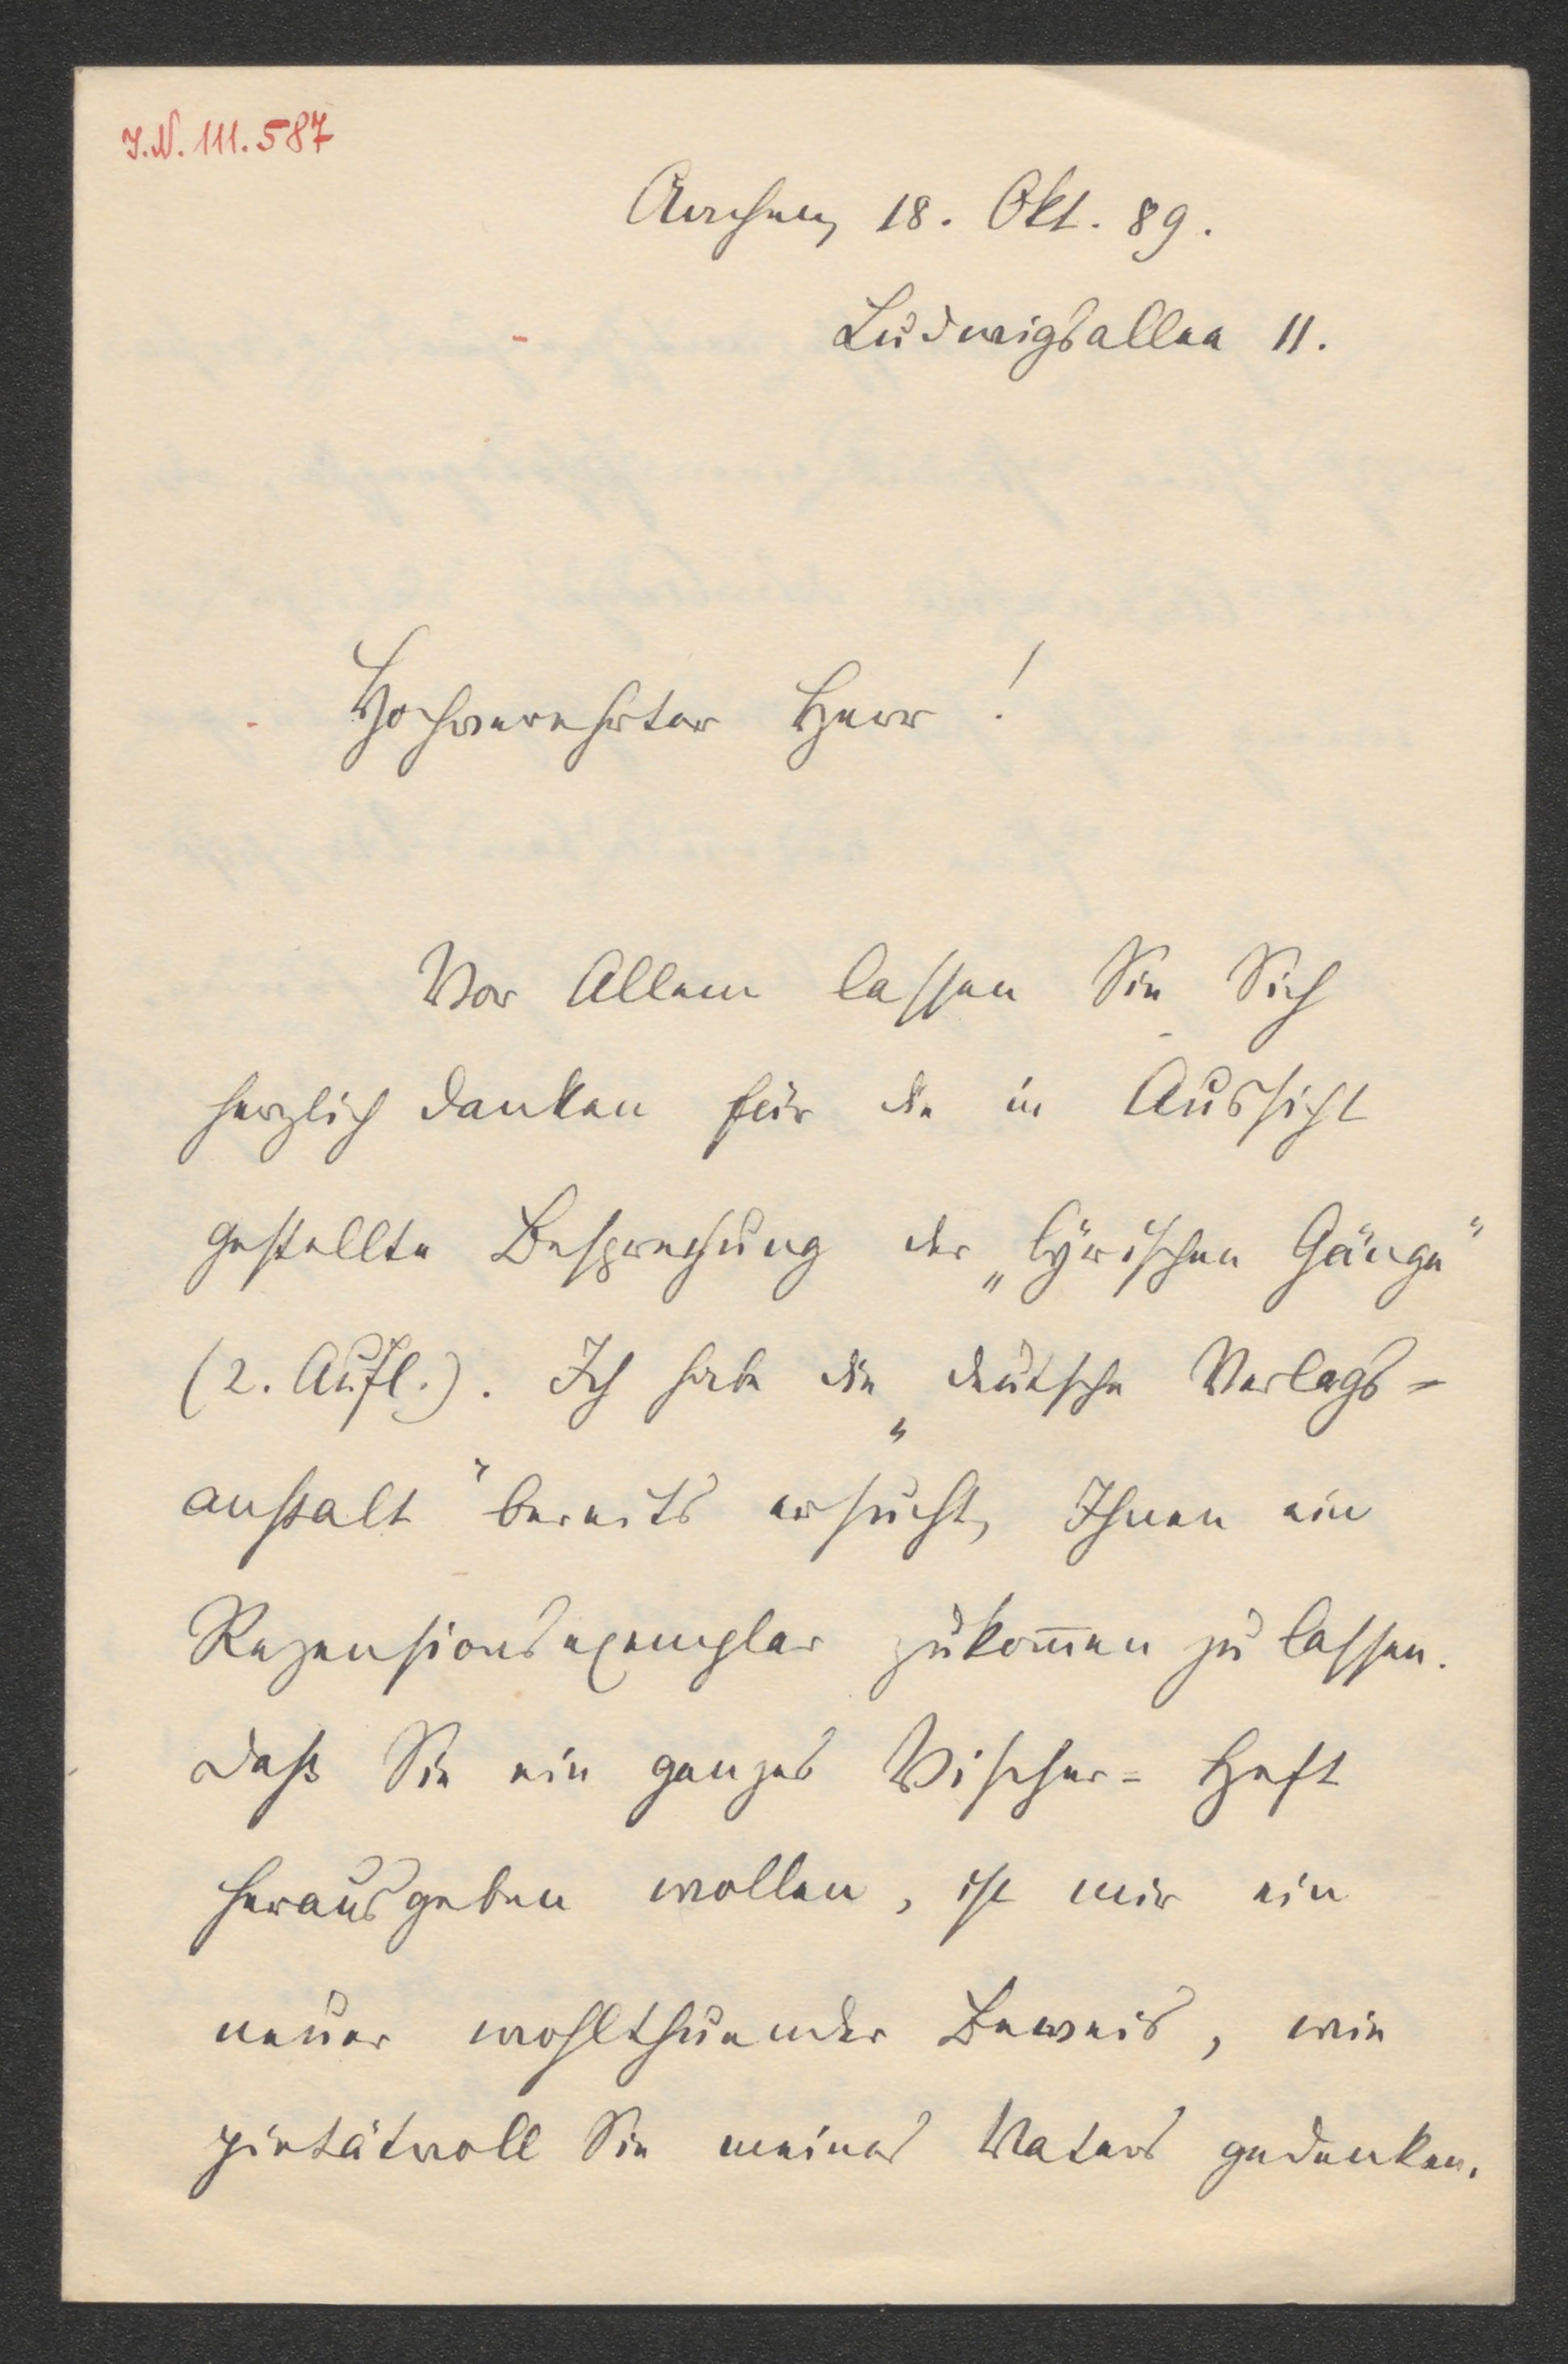 I.N. 111.587
Aachen, 18. Okt. 89.
Ludwigsallee 11.
Hochverehrter Herr!
Vor Allem lassen Sie Sich
herzlich danken für die in Aussicht
gestellte Besprechung der „lyrischen Gänge“
(2. Aufl.). Ich habe die „deutsche Verlags=
anstalt“ bereits ersucht, Ihnen ein
Rezensionsexemplar zukom̅en zu lassen.
Daß Sie ein ganzes Vischer=Heft
herausgeben wollen, ist mir ein
neuer wohlthuender Beweis, wie
pietätvoll Sie meines Vaters gedenken.